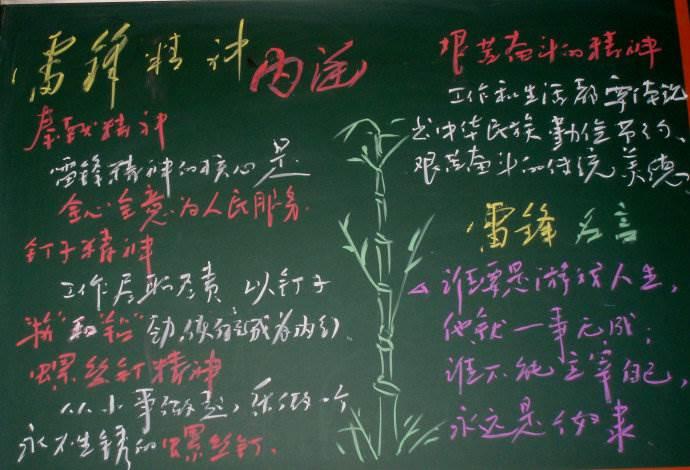 雷锋精神内涵
奉献精神
雷锋精神的核心是
全心全意为人民服务.
钉子精神
工作尽职尽责 以钉子
"挤"和"钻"劲,使自己成为内行.
螺丝钉精神
从小事做起,乐做一个
永不生锈的螺丝钉.
艰苦奋斗的精神
工作和生活都
中华民族勤俭节约、
艰苦奋斗的传统美德.
雷锋名言
谁要是游戏人生,
他就一事无成;
谁不能主宰自己,
永远是个奴隶.